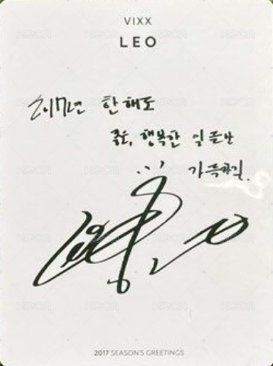 VIXX
LEO
2017년 한해도
좋은, 행복한 일들만
가득하길.
2017 SEASON'S GREETINGS